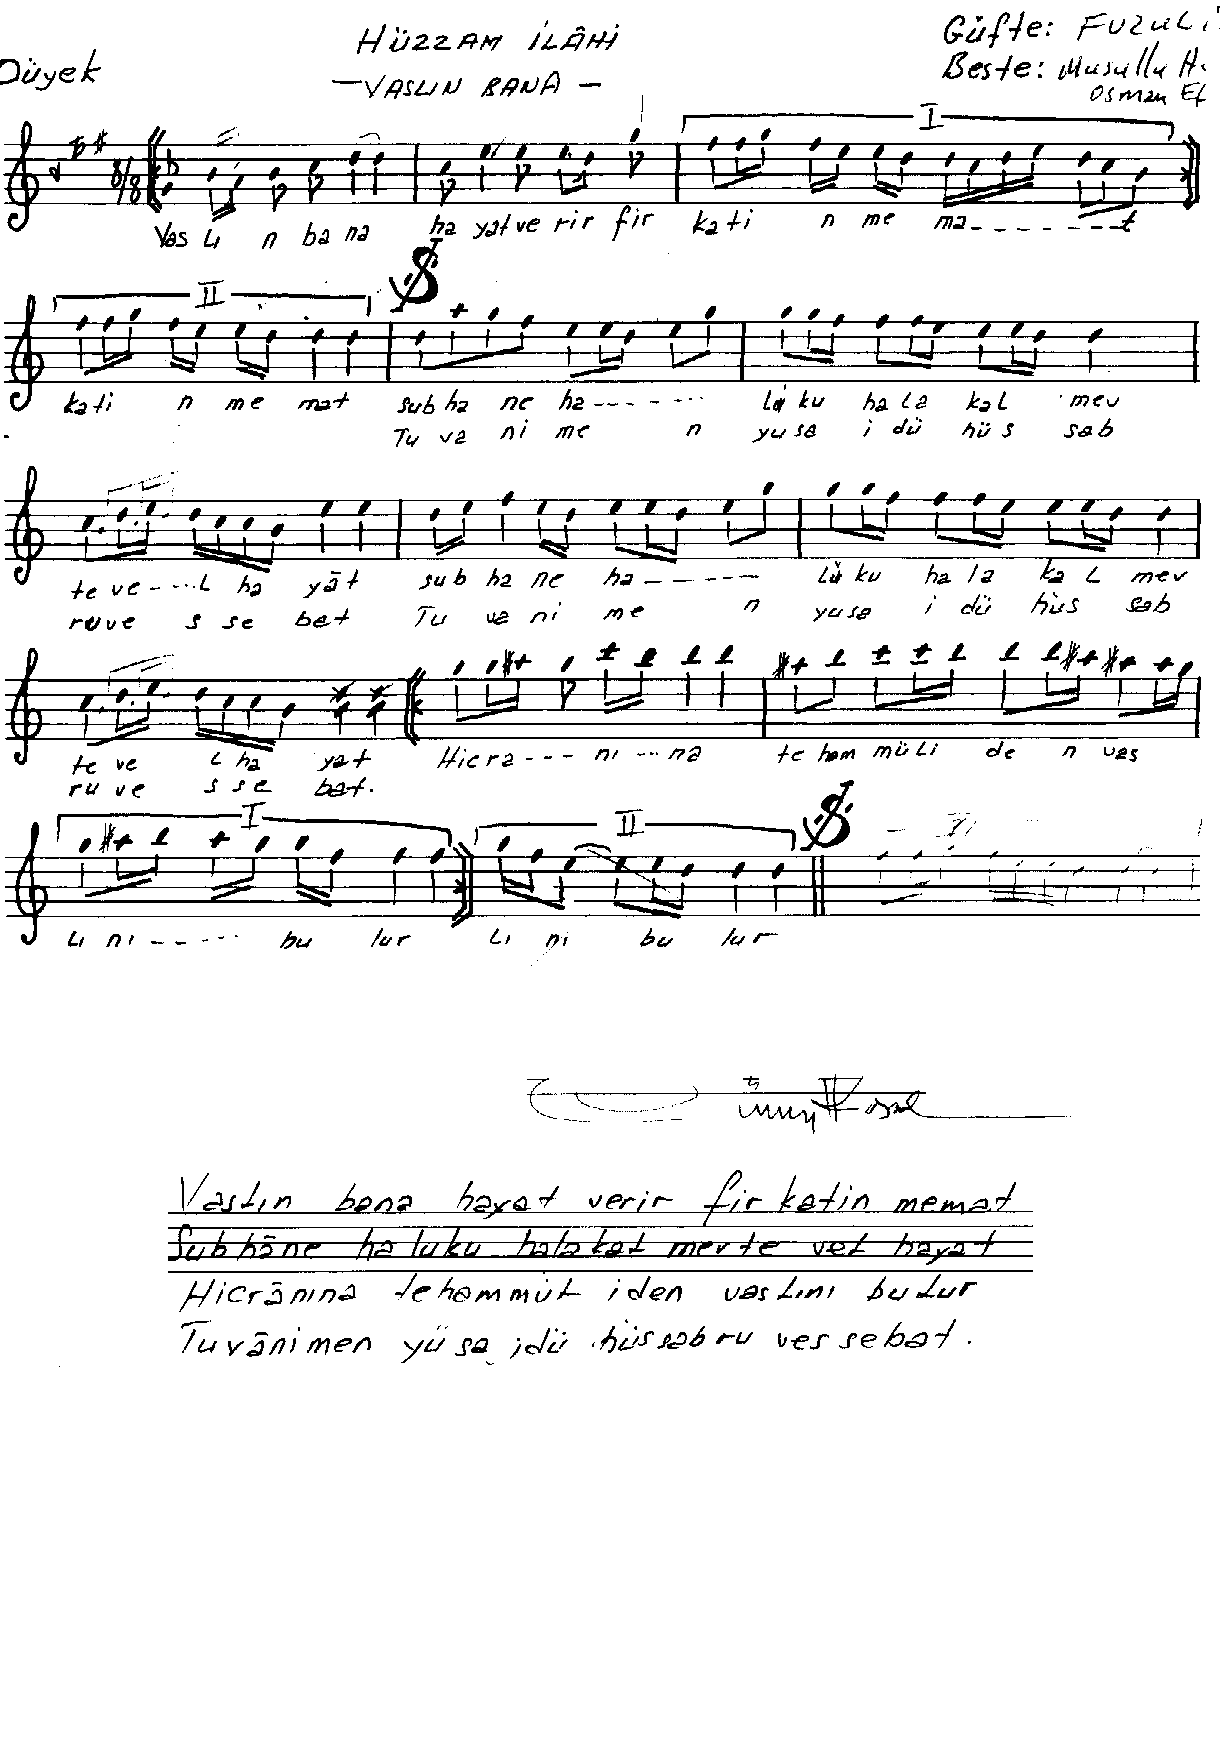 HÜZZAM İLÂHİ
Güfte: FUZULİ
Düyek
— VASLIN BANA —
Beste: Musullu H.
Osman Ef
I
8/8
Vas lı n ba na ha yat ve rir fir ka ti n me ma - - - - - - - t
II
ka ti n me mat sub ha ne ha - - - - - - - Lı ku ha la kaL mev
Tu va ni me n yu sa i dü hü s sab
te ve - - - - L ha yāt sub ha ne ha - - - - - - Lı ku ha la ka L mev
ru ve s se bat Tu va ni me n yu sa i dü hüs sab
te ve L ha yat Hic ra - - - nı - - - na te ham mü Li de n vas
ru ve s se bat.
I II
Lı nı - - - - - - bu lur Lı nı bu lur
Vaslın bana hayat verir fir katin memat
Subhâne ha luku halakal mevte vel hayat
Hicrānına tehammül iden vaslını bulur
Tuvānimen yüsa idü hüssabru vessebat.